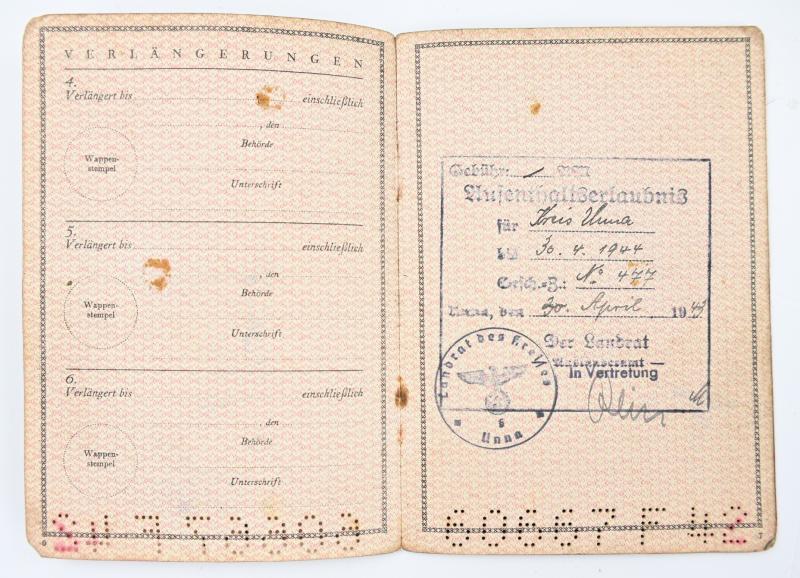 VERLÄNGERUNGEN
4.
Verlängert bis einschließlich
, den
Behörde
Wappen-
stempel
Unterschrift
5.
Verlängert bis einschließlich
, den
Behörde
Wappen-
stempel
Unterschrift
6.
Verlängert bis einschließlich
, den
Behörde
Wappen-
stempel
Unterschrift
6
Gebühr: 1 RM
Aufenthaltserlaubnis
für Kreis Unna
bis 30. 4. 1944
Gesch.-Z.: No 477
Unna, den 30. April 1943
Der Landrat
Ausländeramt
In Vertretung
Landrat des Kreises
Unna
6
7